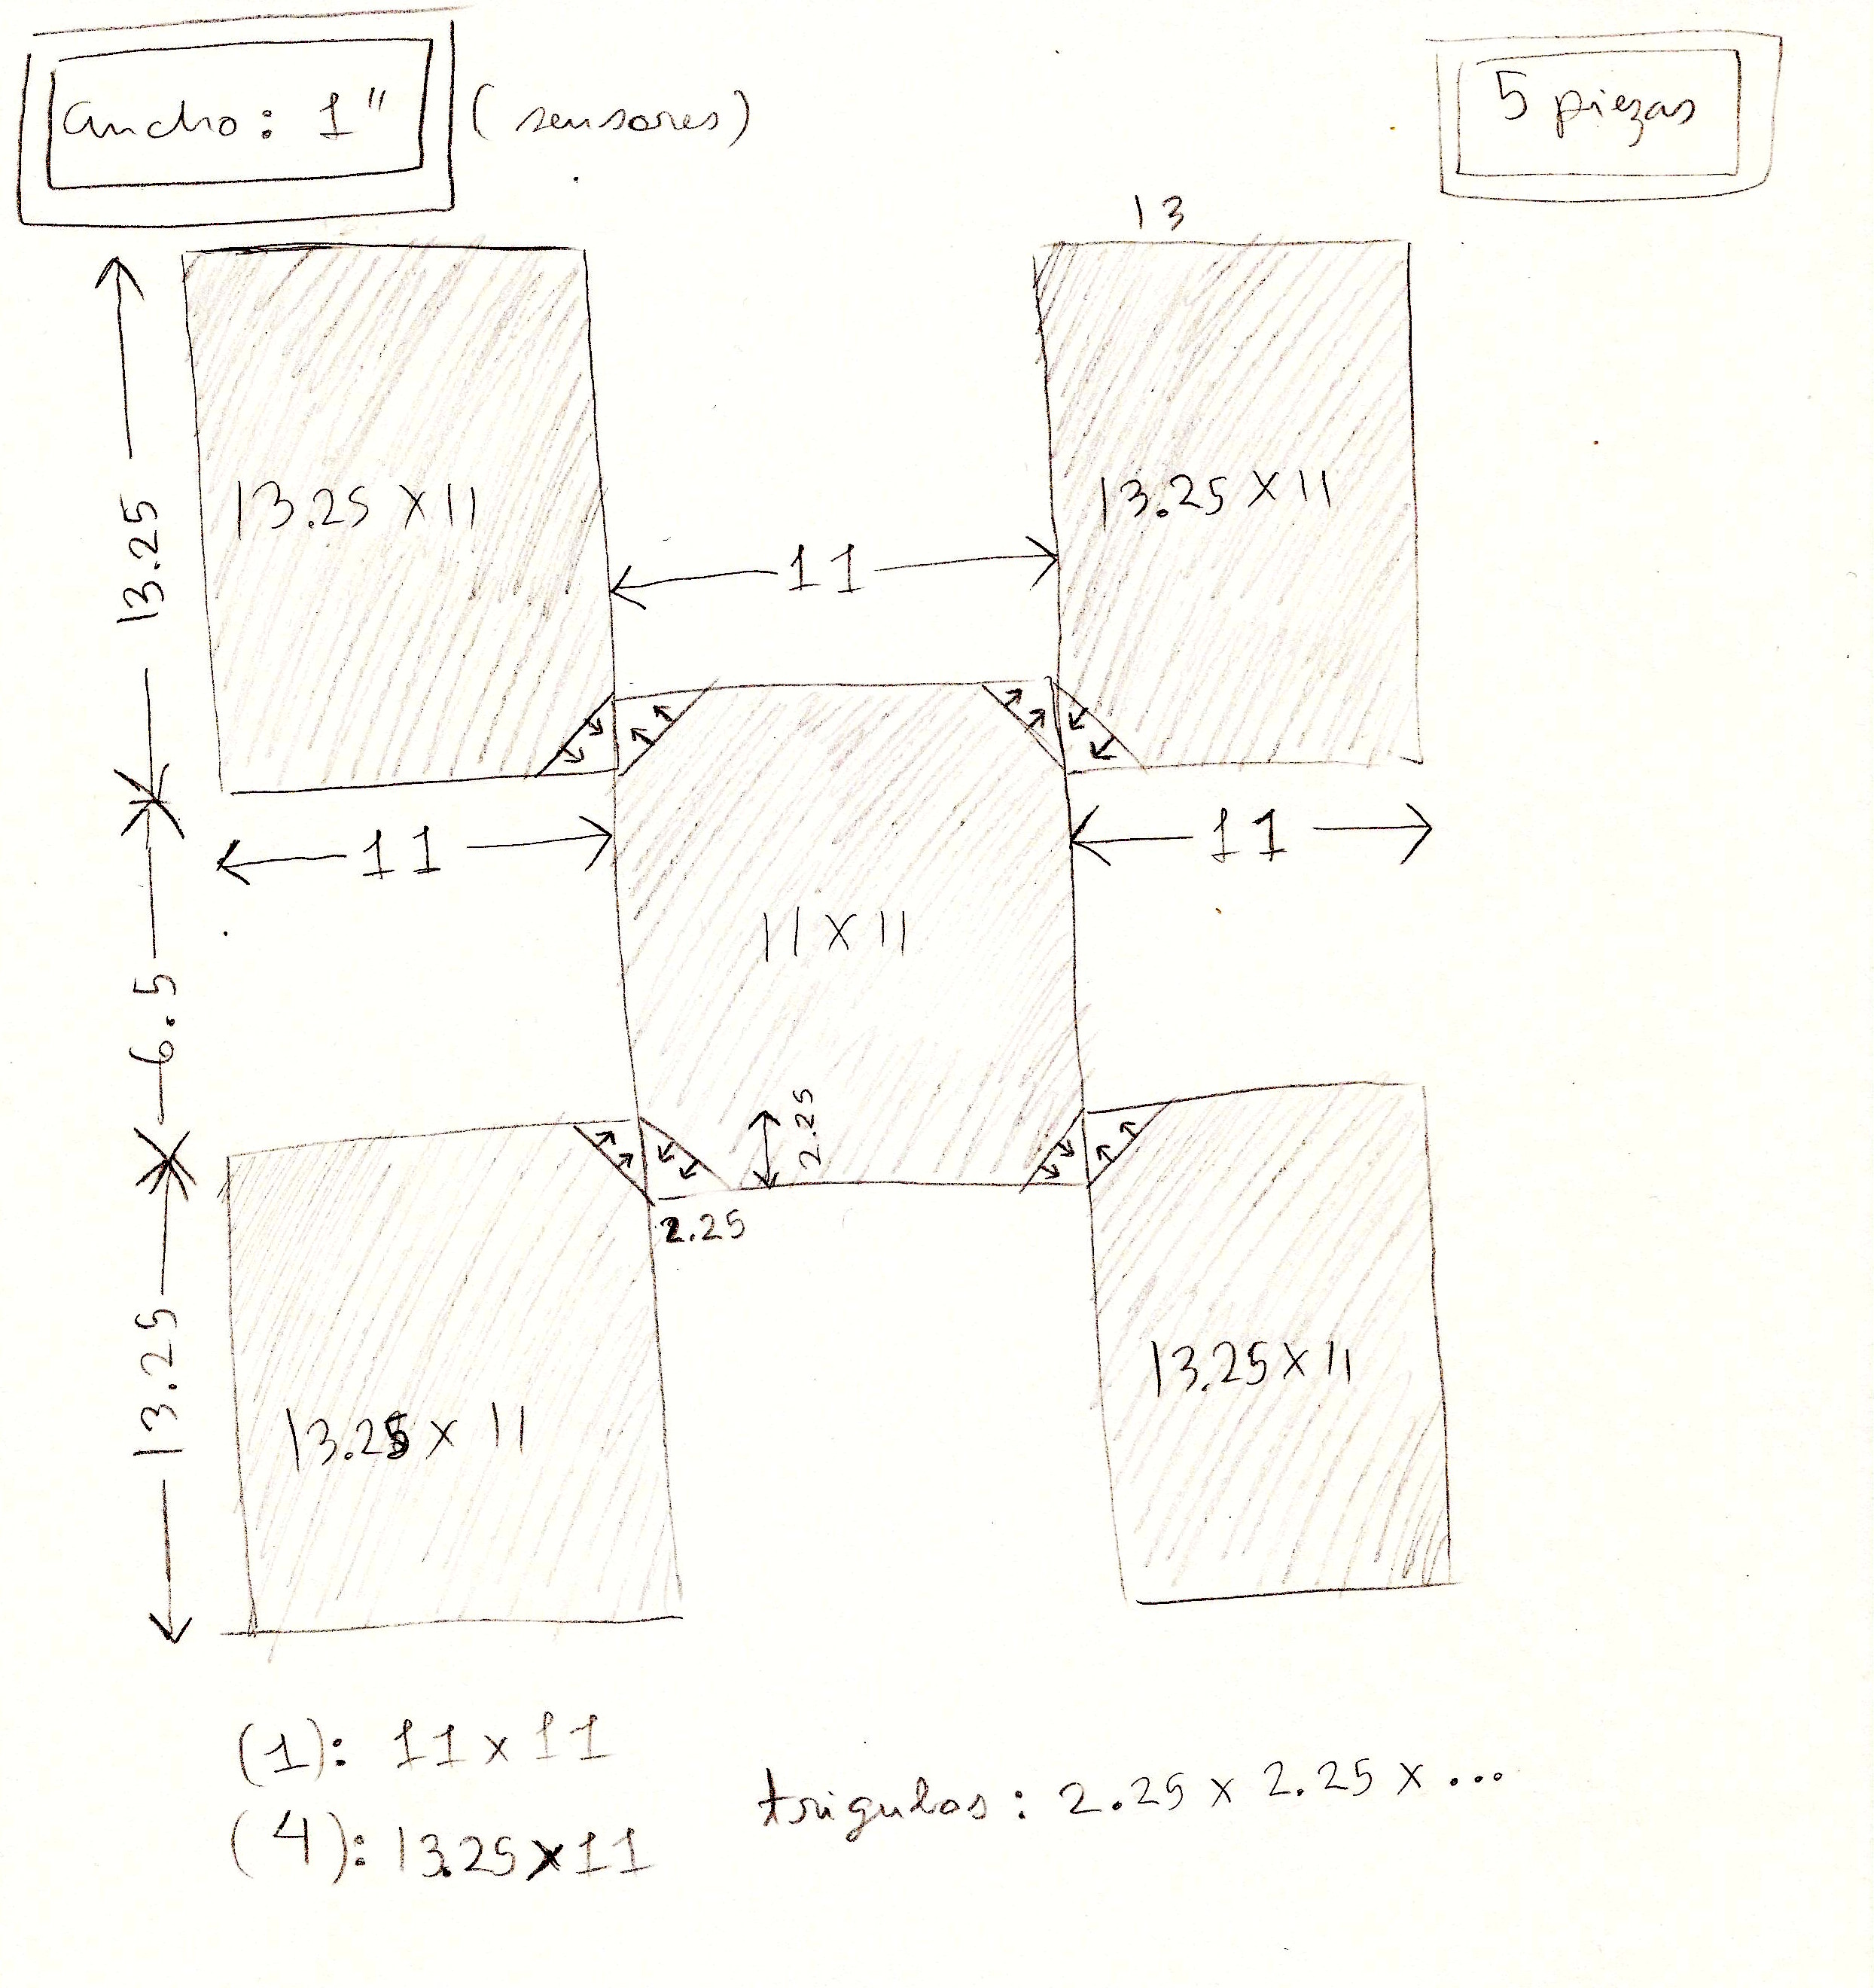 ancho: 1" (sensores)
5 piezas
13
13.25
13.25 x 11
13.25 x 11
11
11
11
11 x 11
6.5
2.25
2.25
13.25
13.25 x 11
13.25 x 11
(1): 11 x 11
(4): 13.25 x 11
trigulos: 2.25 x 2.25 x ...